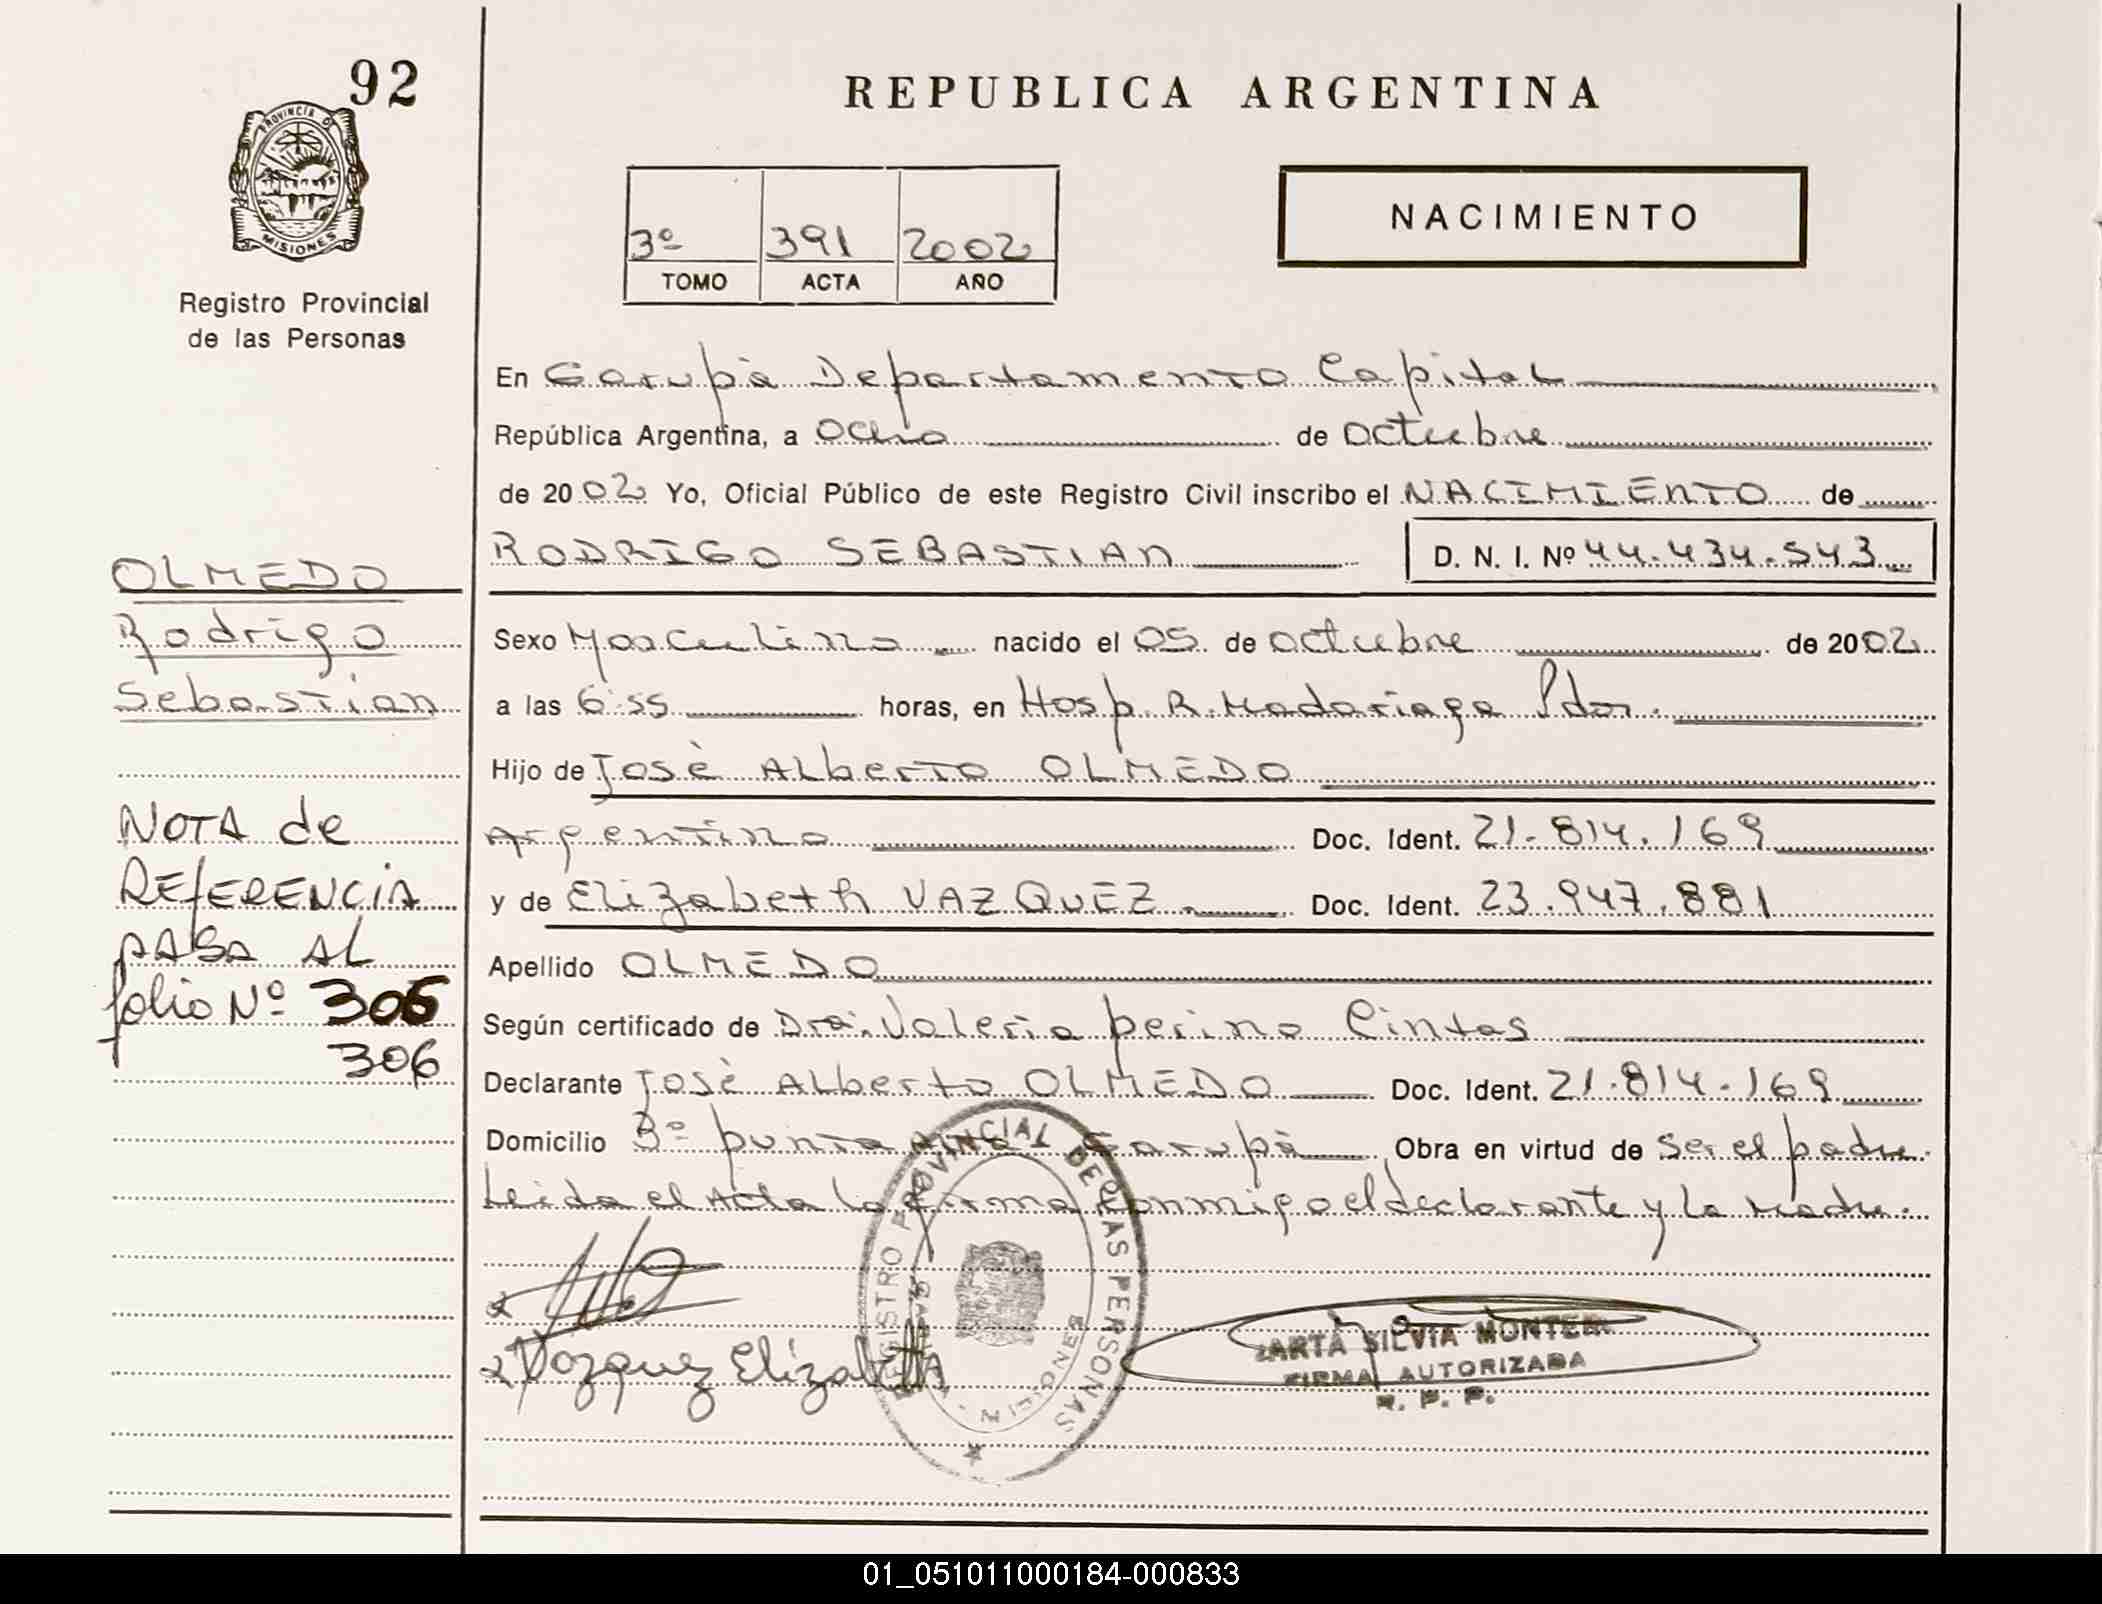 92
PROVINCIA DE
MISIONES
Registro Provincial
de las Personas
OLMEDO
Rodrigo
Sebastian
NOTA de
REFERENCIA
PASA AL
folio Nº 306
306
REPUBLICA ARGENTINA
3º 391 2002
TOMO ACTA AÑO
NACIMIENTO
En Garupà Departamento Capital
República Argentina, a ocho de octubre
de 2002 Yo, Oficial Público de este Registro Civil inscribo el NACIMIENTO de
RODRIGO SEBASTIAN D. N. I. Nº 44.434.543
Sexo Masculino nacido el 05 de octubre de 2002
a las 6:55 horas, en Hosp. R. Madariaga Pdas.
Hijo de Josè Alberto OLMEDO
Argentino Doc. Ident. 21.814.169
y de Elizabeth VAZQUEZ Doc. Ident. 23.947.881
Apellido OLMEDO
Según certificado de Dra. Valeria perino Cintas
Declarante Josè Alberto OLMEDO Doc. Ident. 21.814.169
Domicilio Bº punta Garupà Obra en virtud de Ser el padre.
Leida el Acta la firma conmigo el declarante y la Madre.
Vazquez Elizabeth
REGISTRO PROVINCIAL DE LAS PERSONAS
MISIONES
MARTA SILVIA MONTER
FIRMA AUTORIZADA
R. P. P.
01_051011000184-000833